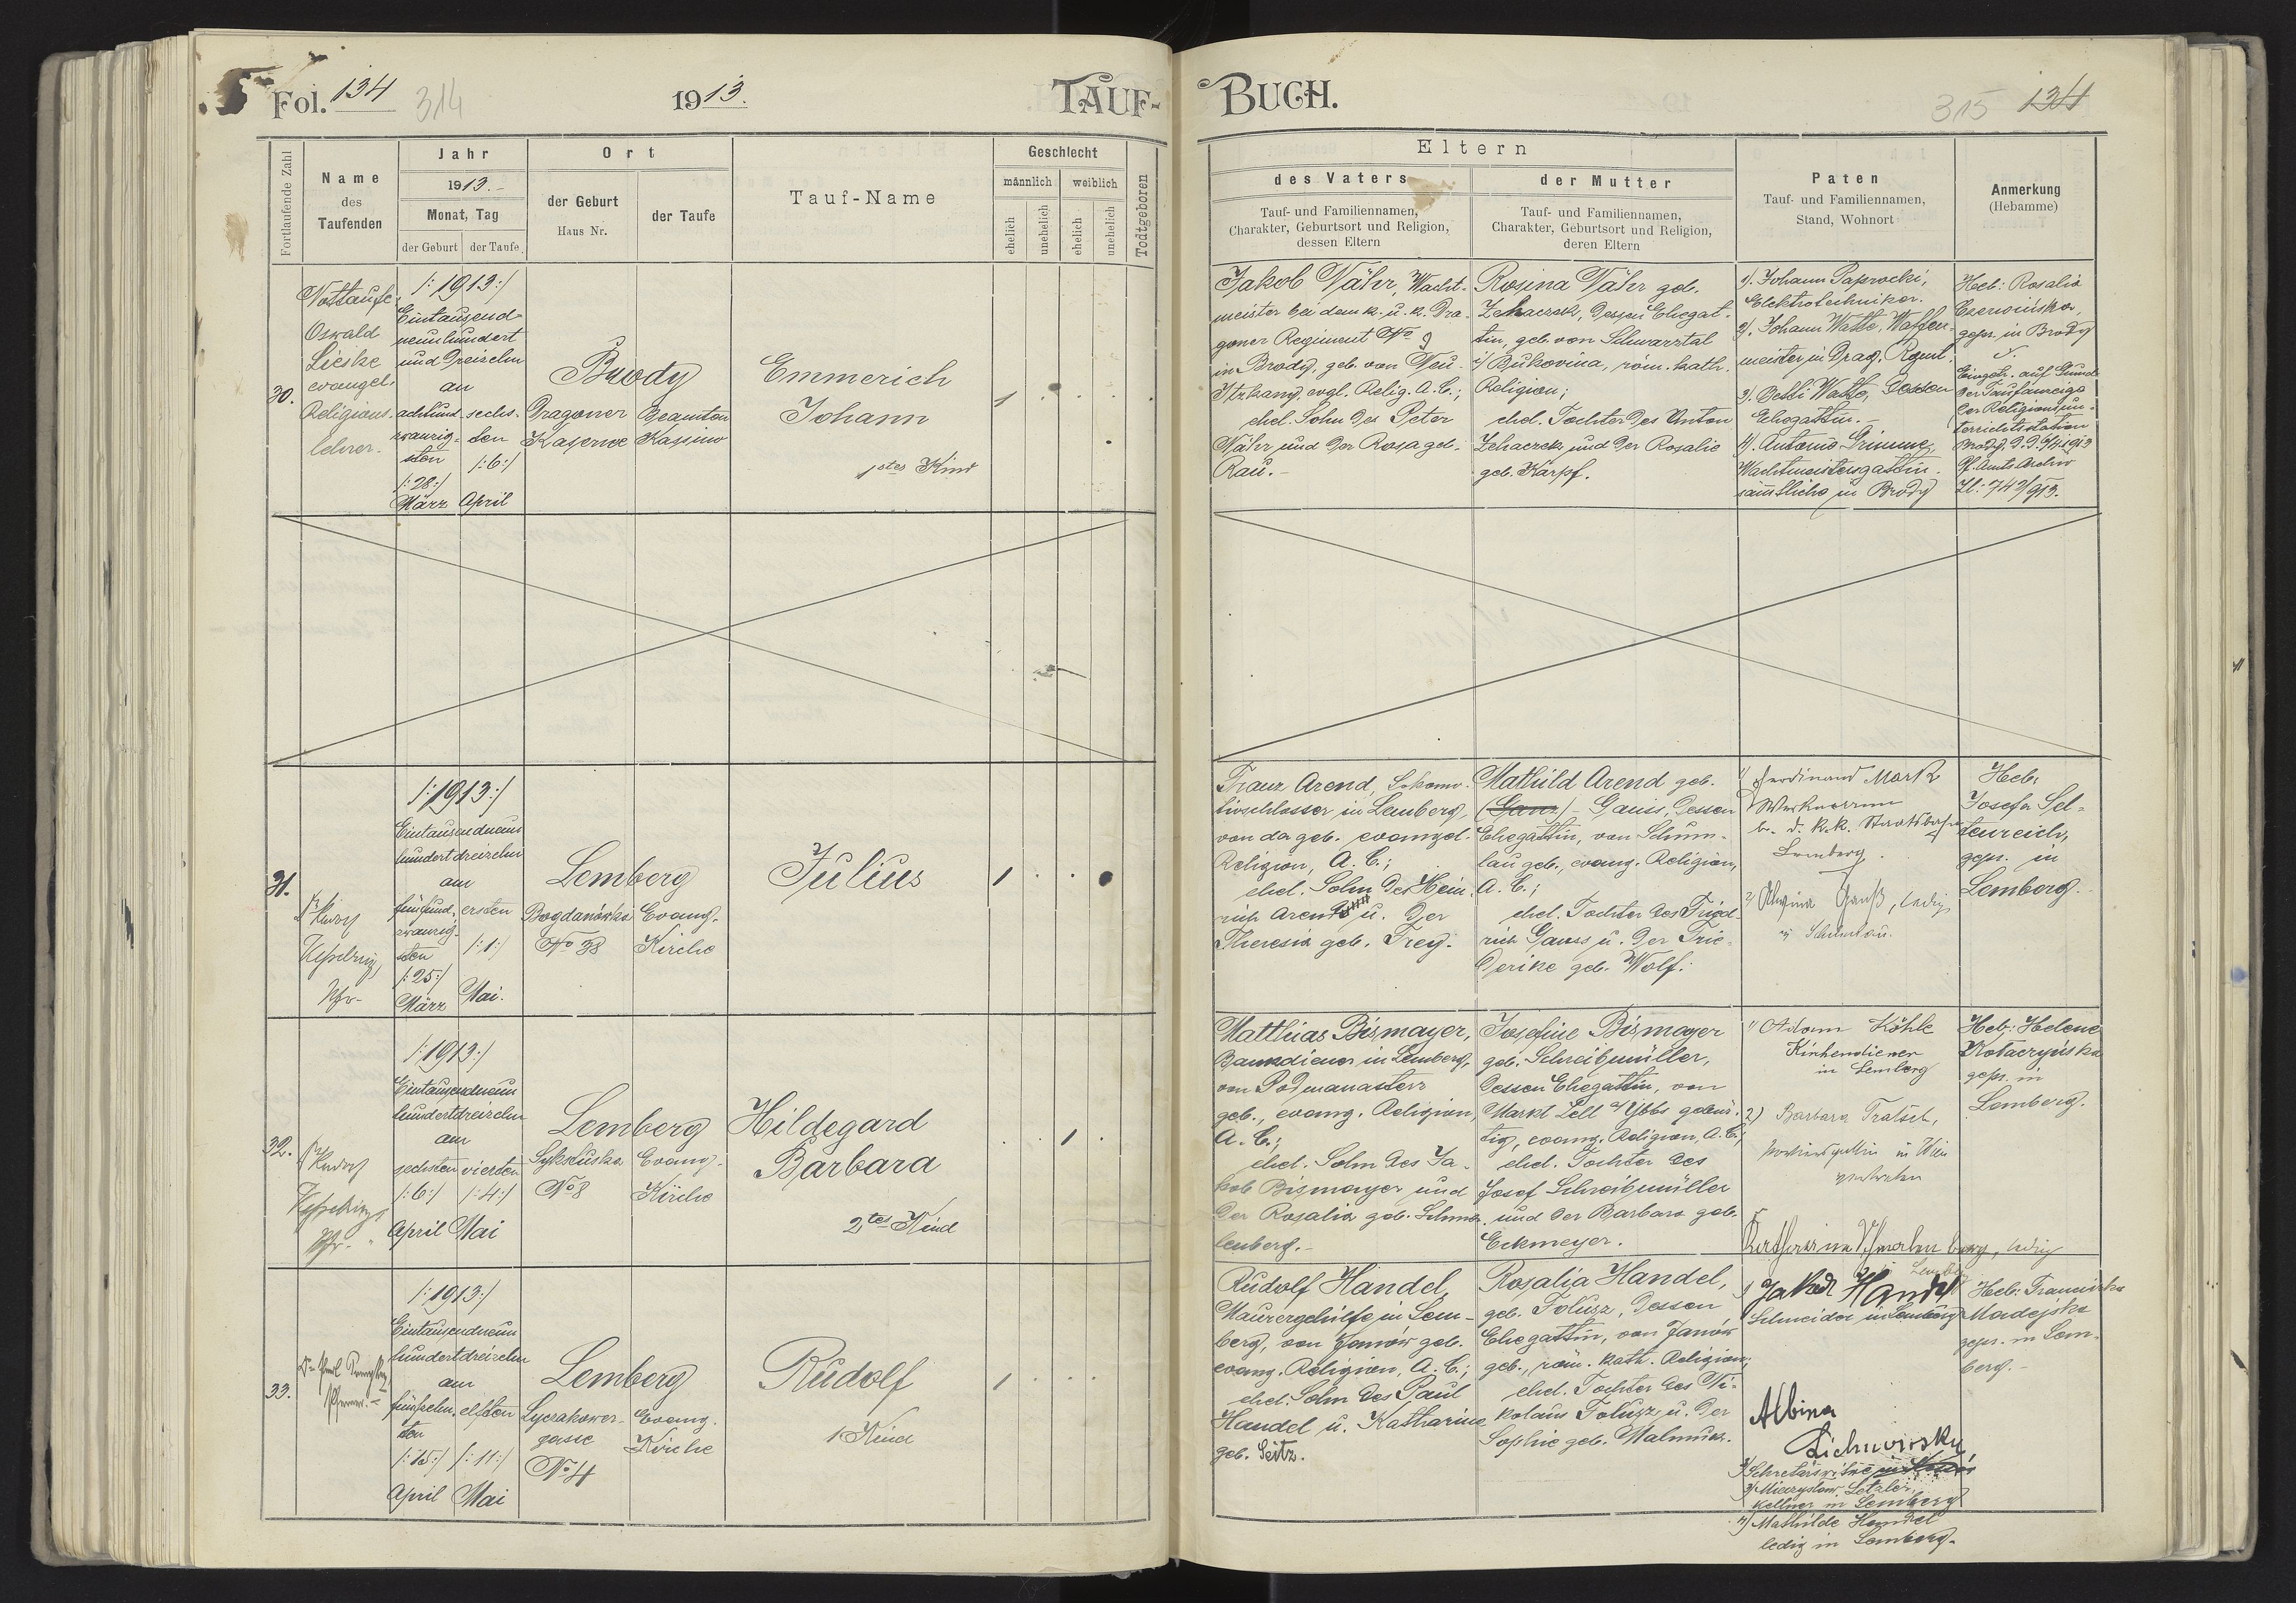 Fol. 134 314
1913.
TAUF-
BUCH.
315 134
Fortlaufende Zahl
Name
des
Taufenden
Jahr
1913.-
Monat, Tag
der Geburt
der Taufe
Ort
der Geburt
Haus Nr.
der Taufe
Tauf-Name
Geschlecht
männlich
weiblich
ehelich
unehelich
ehelich
unehelich
Todtgeboren
Eltern
des Vaters
Tauf- und Familiennamen,
Charakter, Geburtsort und Religion,
dessen Eltern
der Mutter
Tauf- und Familiennamen,
Charakter, Geburtsort und Religion,
deren Eltern
Paten
Tauf- und Familiennamen,
Stand, Wohnort
Anmerkung
(Hebamme)
30.
Nottaufe
Oswald
Lieske
evangel.
Religions-
lehrer.
/:1913:/
Eintausend
neunhundert
und dreizehn
am
achtund-
zwanzig-
sten
/:28:/
März
sechs-
ten
/:6:/
April
Brody
Dragoner
Kaserne
Beamten
Kasino
Emmerich
Johann
1stes Kind
1
Jakob Nähr, Wacht-
meister bei dem k. u. k. Dra-
goner Regiment No 9
in Brody, geb. von Neu-
Itzkany, evgl. Relig. A.C.;
ehel. Sohn des Peter
Nähr und der Rosa geb.
Rau.-
Rosina Nähr geb.
Zehaczek, dessen Ehegat-
tin, geb. von Schwarztal
i/ Bukovina, röm. kath.
Religion;
ehel. Tochter des Anton
Zehaczek und der Rosalie
geb. Kärpf.
1). Johann Paprocki,
Elektrotechniker.
2). Johann Watte, Waffen-
meister in Drag. Rgmt.
3). Betti Watte, dessen
Ehegattin.-
4). Antonio Grimme,
Wachtmeistersgattin.
sämtliche in Brody
Heb: Rosalia
Czerwińska,
gepr. in Brody
Eingetr. auf Grund
der Taufanzeige
der Religionsun-
terrichtsstation
Brody d. d. 6/4 1913
Pf. Amts Archiv
Zl: 742/913.
31.
/:1913:/
Eintausendneun
hundertdreizehn
am
fünfund-
zwanzig-
sten
/:25:/
März
ersten
/:1:/
Mai.
Lemberg
Bogdanówka
No 38
Evang.
Kirche
Julius
1
Franz Arend, Lokomo-
tivschlosser in Lemberg,
von da geb. evangel.
Religion, A.C.;
ehel. Sohn des Hein-
rich Arend u. der
Theresia geb. Frey.
Mathild Arend geb.
(Ganz) Gauss, dessen
Ehegattin, von Schum-
lau geb., evang. Religion,
A.C.;
ehel. Tochter des Fried-
rich Gauss u. der Frie-
derike geb. Wolf.
1) Ferdinand Mark
b. d. k.k. Staatsbahn
Lemberg.
2) Alwina Gauß, ledig
in Schumlau.
Heb:
Josefa Sel-
tenreich,
gepr. in
Lemberg.
32.
/:1913:/
Eintausendneun
hundertdreizehn
am
sechsten
/:6:/
April
vierten
/:4:/
Mai
Lemberg
Sykstuska
No 8
Evang.
Kirche
Hildegard
Barbara
2tes Kind
1
Matthias Bismayer,
Bankdiener in Lemberg,
von Podmanasterz
geb., evang. Religion,
A.C.;
ehel. Sohn des Ja-
kob Bismayer und
der Rosalia geb. Schmer-
lenberg.-
Josefine Bismayer
geb. Schreibmüller,
dessen Ehegattin, von
Markt Zell a/Ybbs gebür-
tig, evang. Religion, A.C.;
ehel. Tochter des
Josef Schreibmüller
und der Barbara geb.
Eckmeyer.
1) Adam Köhle
Kirchendiener
in Lemberg
2) Barbara Tratsch,
in Wien
vertreten
Katharina Schmerlenberg, ledig
Lemberg
Heb: Helene
Kotaczyńska
gepr. in
Lemberg.
33.
/:1913:/
Eintausendneun
hundertdreizehn
am
fünfzehn-
ten
/:15:/
April
elften
/:11:/
Mai
Lemberg
Lyczakower-
gasse
No 4
Evang.
Kirche
Rudolf
1 Kind
1
Rudolf Handel,
Maurergehilfe in Lem-
berg, von Janów geb.
evang. Religion, A.C.;
ehel. Sohn des Paul
Handel u. Katharine
geb. Seitz.
Rosalia Handel,
geb. Tolusz, dessen
Ehegattin, von Janów
geb., röm. kath. Religion;
ehel. Tochter des Ni-
kolaus Tolusz u. der
Sophie geb. Malmusz.
1) Jakob Handel
Schneider in Lemberg
Albina
Lichnovsky,
3) Mieczysław Letzler,
Kellner in Lemberg
4) Mathilde Handel
ledig in Lemberg.
Heb: Franciszka
Madejska
gepr. in Lem-
berg.-